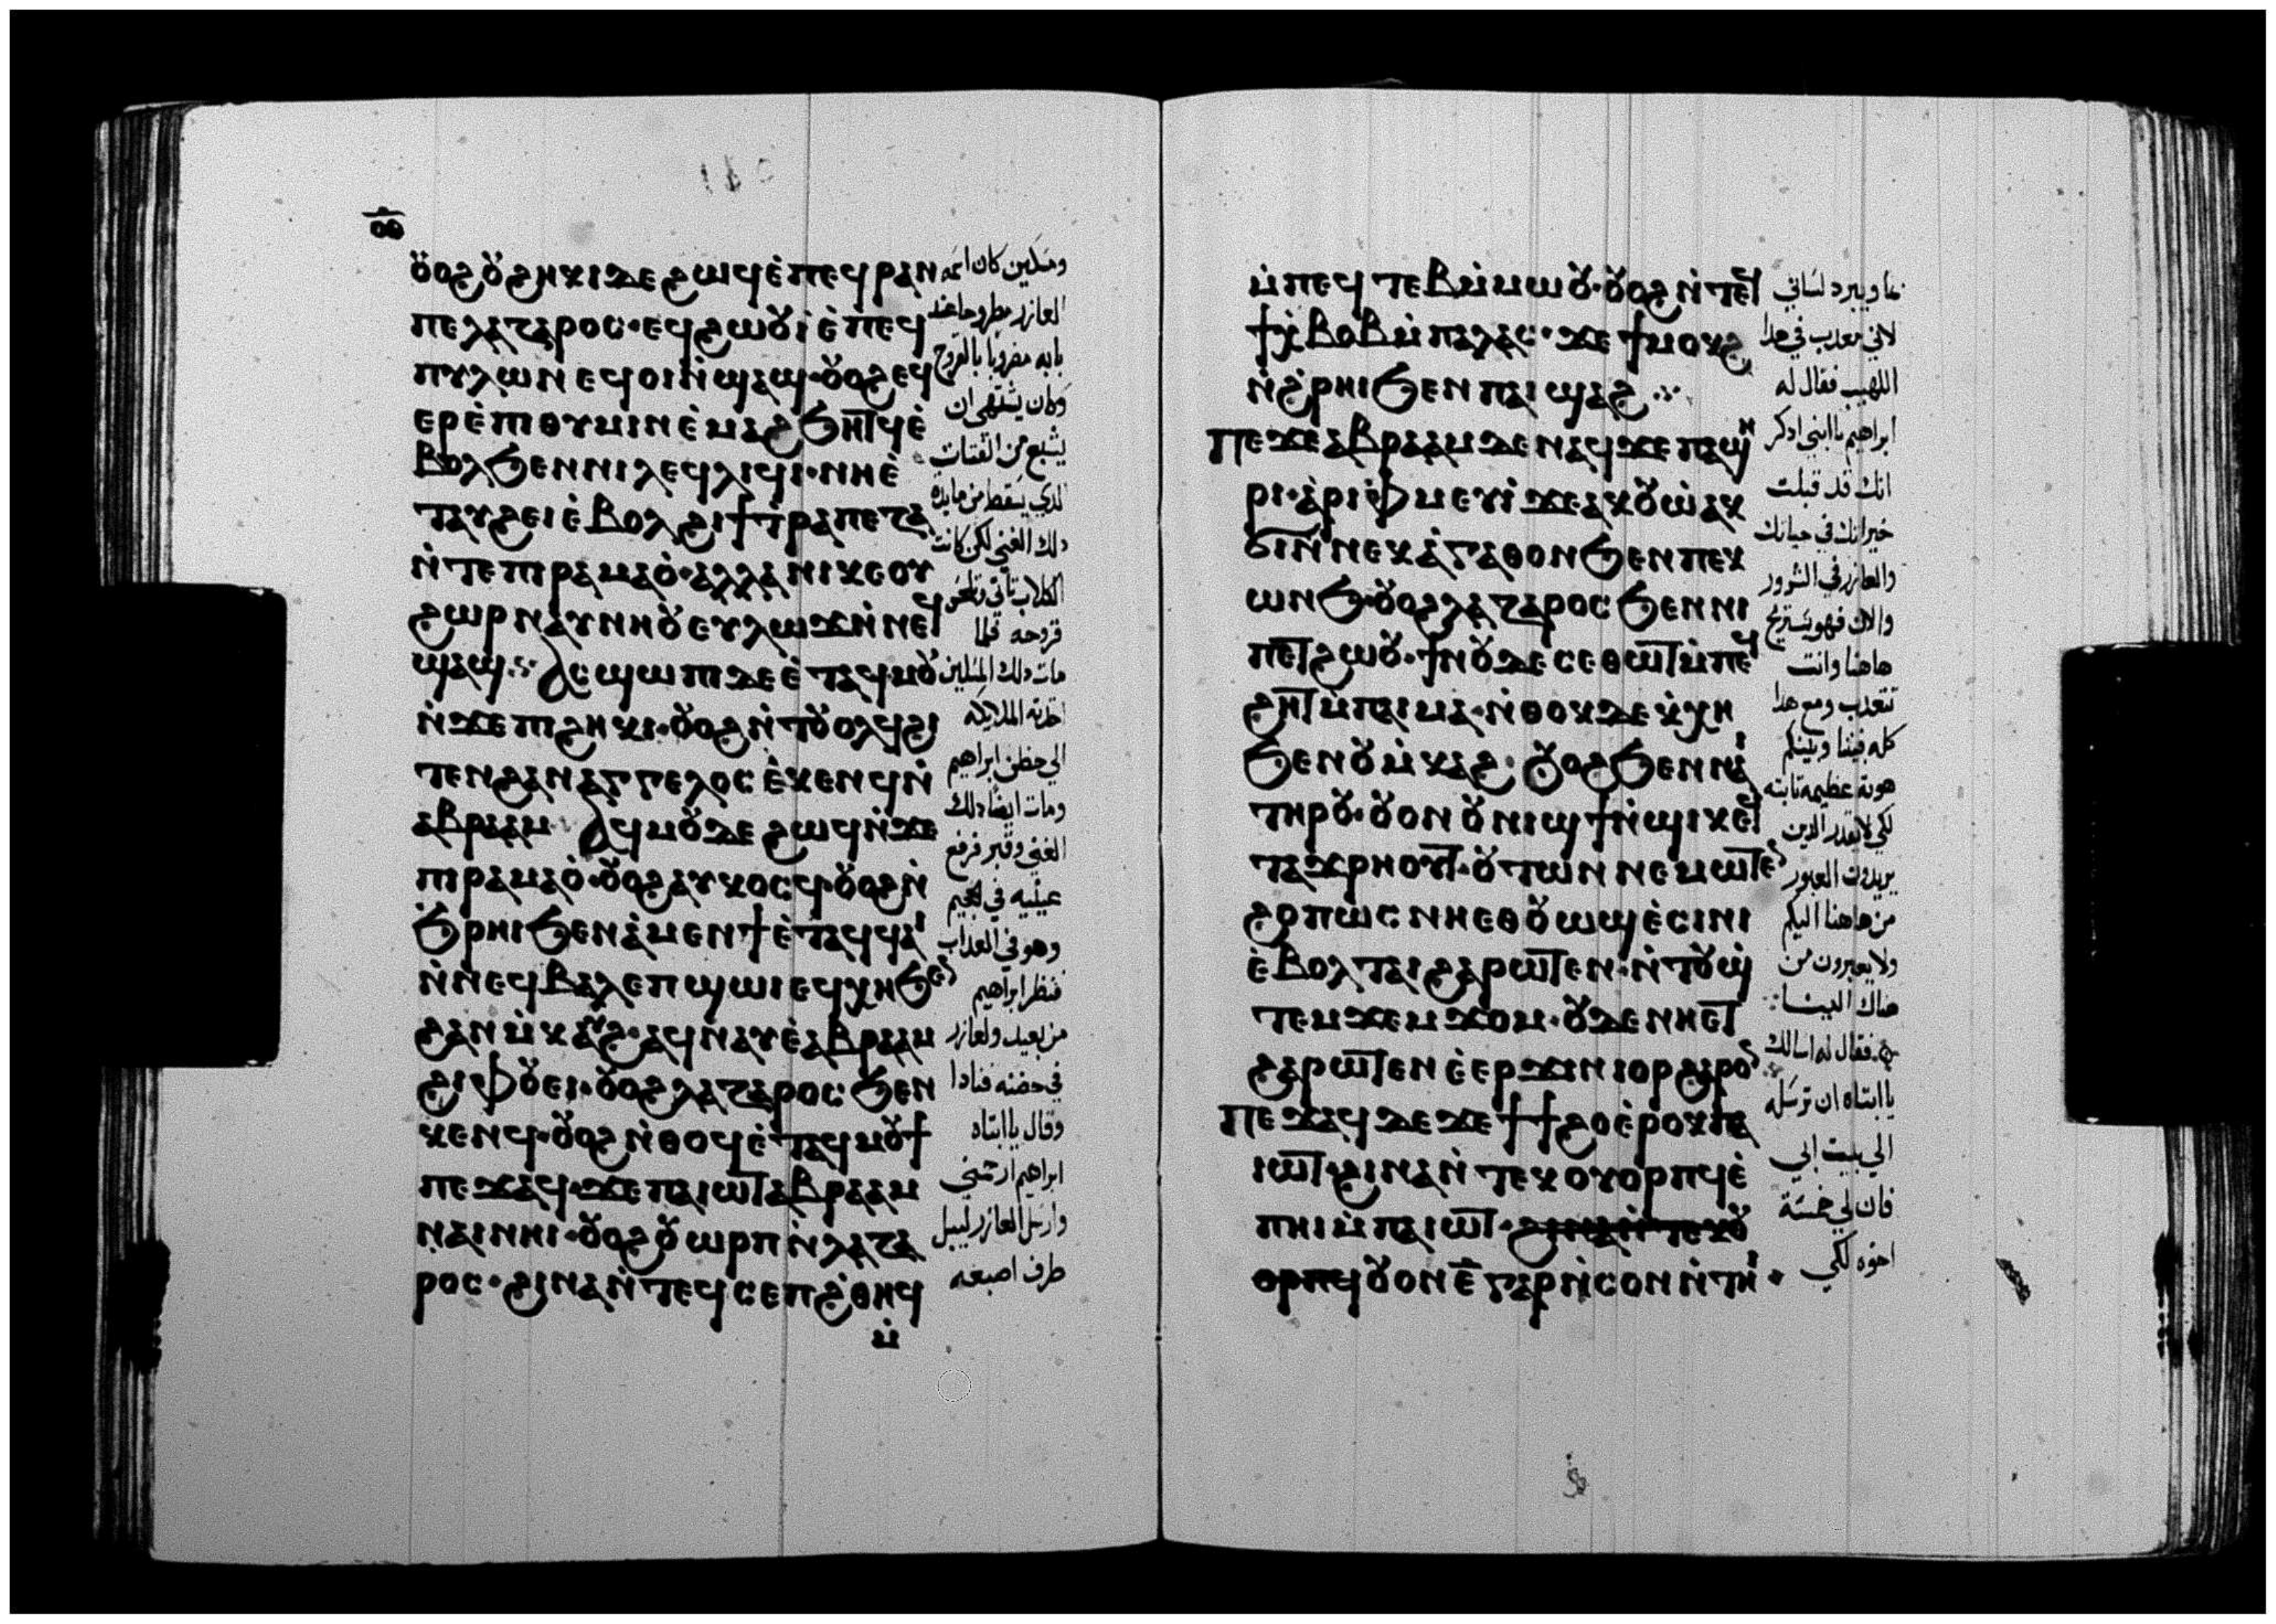 ⲟ̅ⲑ̅
ⲟ̈ⲟϩ ⲟ̈ϩⲏⲕⲓ ⲇⲉ ϩⲱϥ ⲉ̇ⲡⲉϥⲣⲁⲛ
ⲡⲉ ⲗⲁⲍⲁⲣⲟⲥ· ⲉϥϩⲱⲟ̈ⲓ̇ ⲉ̇ⲡⲉϥ
ⲡⲩⲗⲱⲛ ⲉϥⲟⲓ ⲛ̇ϣⲁϣ· ⲟ̈ⲟϩ ⲉϥ
ⲉⲣⲉ̇ⲡⲓⲑⲩⲙⲓⲛ ⲉ̇ⲙⲁϩ ϧⲏⲧϥ ⲉ̇
ⲃⲟⲗ ϧⲉⲛ ⲛⲓⲗⲉϥⲗⲓϥⲓ· ⲛⲏ ⲉ̇
ⲧⲁⲩϩⲉⲓ ⲉ̇ⲃⲟⲗ ϩⲓ ϯⲧ̇ⲣⲁⲡⲉⲍⲁ
ⲛ̇ⲧⲉ ⲡⲓⲣⲁⲙⲁⲟ̇· ⲁⲗⲗⲁ ⲛⲓⲕⲉⲟⲩ
ϩⲱⲣ ⲛⲁⲩⲛⲏⲟ̈ ⲉⲩⲗⲱϫ ⲛ̇ⲛⲉϥ
ϣⲁϣ· ⲁⲥϣⲱⲡⲓ ⲇⲉ ⲉ̇ⲧⲁϥⲙⲟ̈
ⲛ̇ϫⲉ ⲡⲓϩⲏⲕⲓ· ⲟ̈ⲟϩ ⲛ̇ⲧⲟ̈ⲟⲗϥ ϩⲓ
ⲧⲉⲛ ϩⲁⲛⲁⲅⲅⲉⲗⲟⲥ ⲉ̇ⲕⲉⲛϥ ⲛ̇
ⲁⲃⲣⲁⲁⲙ· ⲁϥⲙⲟ̈ ⲇⲉ ϩⲱϥ ⲛ̇ϫⲉ
ⲡⲓⲣⲁⲙⲁⲟ̇· ⲟ̈ⲟϩ ⲁⲩⲕⲟⲥϥ· ⲟ̈ⲟϩ ⲛ̇
ϧ̇ⲣⲏⲓ ϧⲉⲛ ⲁ̇ⲙⲉⲛϯ ⲉ̇ⲧⲁϥϥⲁⲓ
ⲛ̇ⲛⲉϥⲃⲁⲗ ⲉⲡϣⲱⲓ ⲉϥⲭⲏ ϧⲉⲛ
ϩⲁⲛⲙ̇ⲕⲁⲩϩ· ⲁϥⲛⲁⲩ ⲉ̇ⲁⲃⲣⲁⲁⲙ
ϩⲓⲫⲟ̈ⲉⲓ· ⲟ̈ⲟϩ ⲗⲁⲍⲁⲣⲟⲥ ϧⲉⲛ
ⲕⲉⲛϥ· ⲟ̈ⲟϩ ⲛ̇ⲑⲟϥ ⲉ̇ⲧⲁϥⲙⲟ̈ϯ
ⲡⲉϫⲁϥ· ϫⲉ ⲡⲁⲓⲱⲧ ⲁⲃⲣⲁⲁⲙ
ⲛⲁⲓ ⲛⲏⲓ· ⲟ̈ⲟϩ ⲟ̈ⲱⲣⲡ ⲛ̇ⲗⲁⲍⲁ
ⲣⲟⲥ· ϩⲓⲛⲁ ⲛ̇ⲧⲉϥⲥⲉⲡ ϩ̇ⲑⲏϥ
ⲙ̇
ومسكين كان اسمه
العازر مطروحا عند
بابه مضروبا بالقروح
وكان يشتهي ان
يشبع من الفتات
الدي يسقط من مايدة
دلك الغني لكن كانت
الكلاب تاتي تلحس
قروحه فلما
مات دلك المسكين
اخدته الملايكه
الي حضن ابراهيم
ومات ايضا دلك
الغني وقبر فرفع
عينيه في الجحيم
وهو في العداب
فنظر ابراهيم
من بعيد ولعازر
في حضنه فنادا
وقال يا ابتاه
ابراهيم ارحمني
وارسل العازر ليبل
طرف اصبعه
ⲙ̇ⲡⲉϥⲧⲉⲃ ⲙ̇ⲙⲱⲟ̈· ⲟ̈ⲟϩ ⲛ̇ⲧⲉϥ
ϯⲭ̇ⲃⲟⲃ ⲙ̇ⲡⲁⲗⲁⲥ· ϫⲉ ϯⲙⲟⲕϩ
ⲛ̇ϩ̇ⲣⲏⲓ ϧⲉⲛ ⲡⲁⲓϣⲁϩ
ⲡⲉϫⲉ ⲁⲃⲣⲁⲁⲙ ⲇⲉ ⲛⲁϥ ϫⲉ ⲡⲁϣⲏ
ⲣⲓ· ⲁ̇ⲣⲓⲫ̇ⲙⲉⲩⲓ̇ ϫⲉ ⲁⲕⲟ̈ⲱ̇ ⲁⲕ
ϭⲓ ⲛ̇ⲛⲉⲕⲁ̇ⲅⲁⲑⲟⲛ ϧⲉⲛ ⲡⲉⲕ
ⲱⲛϧ· ⲟ̈ⲟϩ ⲗⲁⲍⲁⲣⲟⲥ ϧⲉⲛ ⲛⲓ
ⲡⲉⲧϩⲱⲟ̈· ϯⲛⲟ̈ ⲇⲉ ⲥⲉⲑⲱⲧ ⲙ̇ⲡⲉϥ
ϩⲏⲧ ⲙ̇ⲡⲁⲓⲙⲁ· ⲛ̇ⲑⲟⲕ ⲇⲉ ⲕ̇ⲭⲏ
ϧⲉⲛ ⲟ̈ⲙ̇ⲕⲁϩ· ⲟ̈ⲟϩ ϧⲉⲛ ⲛⲁⲓ
ⲧⲏⲣⲟ̈· ⲟ̈ⲟⲛ ⲟ̈ⲛⲓϣϯ ⲛ̇ϣⲓⲕ ⲉϥ
ⲧⲁϫⲣⲏⲟⲩⲧ· ⲟ̈ⲧⲱⲛ ⲛⲉⲙⲱⲧⲉⲛ
ϩⲟⲡⲱⲥ ⲛⲏ ⲉⲑⲟ̈ⲱϣ ⲉ̇ⲥⲓⲛⲓ
ⲉ̇ⲃⲟⲗ ⲧⲁⲓ ϩⲁⲣⲱⲧⲉⲛ· ⲛ̇ⲧⲟ̈ϣ̇
ⲧⲉⲙϫⲉⲙϫⲟⲙ· ⲟ̈ⲇⲉ ⲛⲏ ⲉⲧ
ϩⲁⲣⲱⲧⲉⲛ ⲉ̇ⲉⲣϫⲓⲛⲓⲟⲣ ϩⲁⲣⲟⲛ
ⲡⲉϫⲁϥ ⲇⲉ ϫⲉ ϯϯϩⲟ ⲉ̇ⲣⲟⲕ ⲡⲁ
ⲓⲱⲧ· ϩⲓⲛⲁ ⲛ̇ⲧⲉⲕⲟⲩⲟⲣⲡϥ ⲉ̇
ⲡⲏⲓ ⲙ̇ⲡⲁⲓⲱⲧ· ϩⲓⲛⲁ ⲛ̇ⲧⲉⲕⲟ̈
ⲟⲣⲡϥ ⲟ̈ⲟⲛ ⲉ̅ ⲅⲁⲣ ⲛ̇ⲥⲟⲛ ⲛ̇ⲧⲏⲓ
بما ويبرد لساني
لاني معدب في هدا
اللهيب فقال له
ابراهيم يا ابني ادكر
انك قد قبلت
خيراتك في حياتك
والعازر في الشرور
والان فهو يستريح
هاهنا وانت
تتعدب ومع هدا
كله فبيننا وبينكم
هوته عظيمه تابته
لكي لا يقدر الدين
يريدون العبور
من هاهنا اليكم
ولا يعبرون من
هناك الينا
فقال له اسالك
يا ابتاه ان ترسله
الي بيت ابي
فان لي خمسة
اخوه لكي